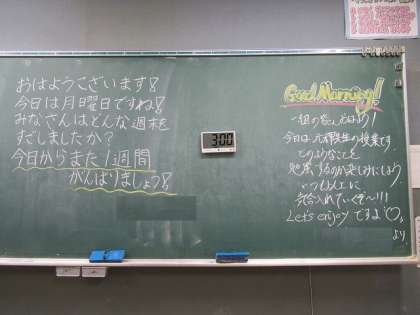 おはようございます!
今日は月曜日ですね!
みなさんはどんな週末を
すごしましたか?
今日からまた1週間
がんばりましょう!
3:00
Good Morning!!
一組の皆、おはよう!
今日は
の授業です
どのようなことを
するのか楽しみにしよう
気合入れていくぞ〜!!!
Let's enjoy ですよ
より